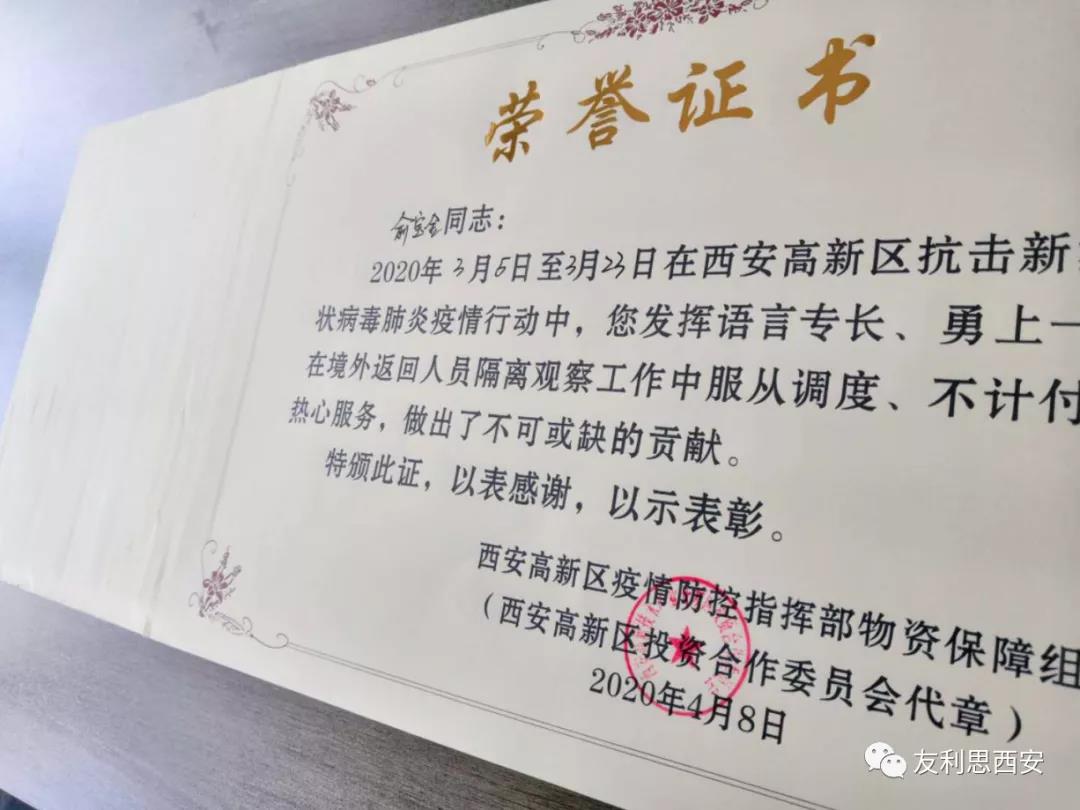 荣誉证书
俞宝金同志：
2020年3月6日至3月23日在西安高新区抗击新
状病毒肺炎疫情行动中，您发挥语言专长、勇上一
在境外返回人员隔离观察工作中服从调度、不计付
热心服务，做出了不可或缺的贡献。
特颁此证，以表感谢，以示表彰。
西安高新区疫情防控指挥部物资保障组
（西安高新区投资合作委员会代章）
2020年4月8日
友利思西安